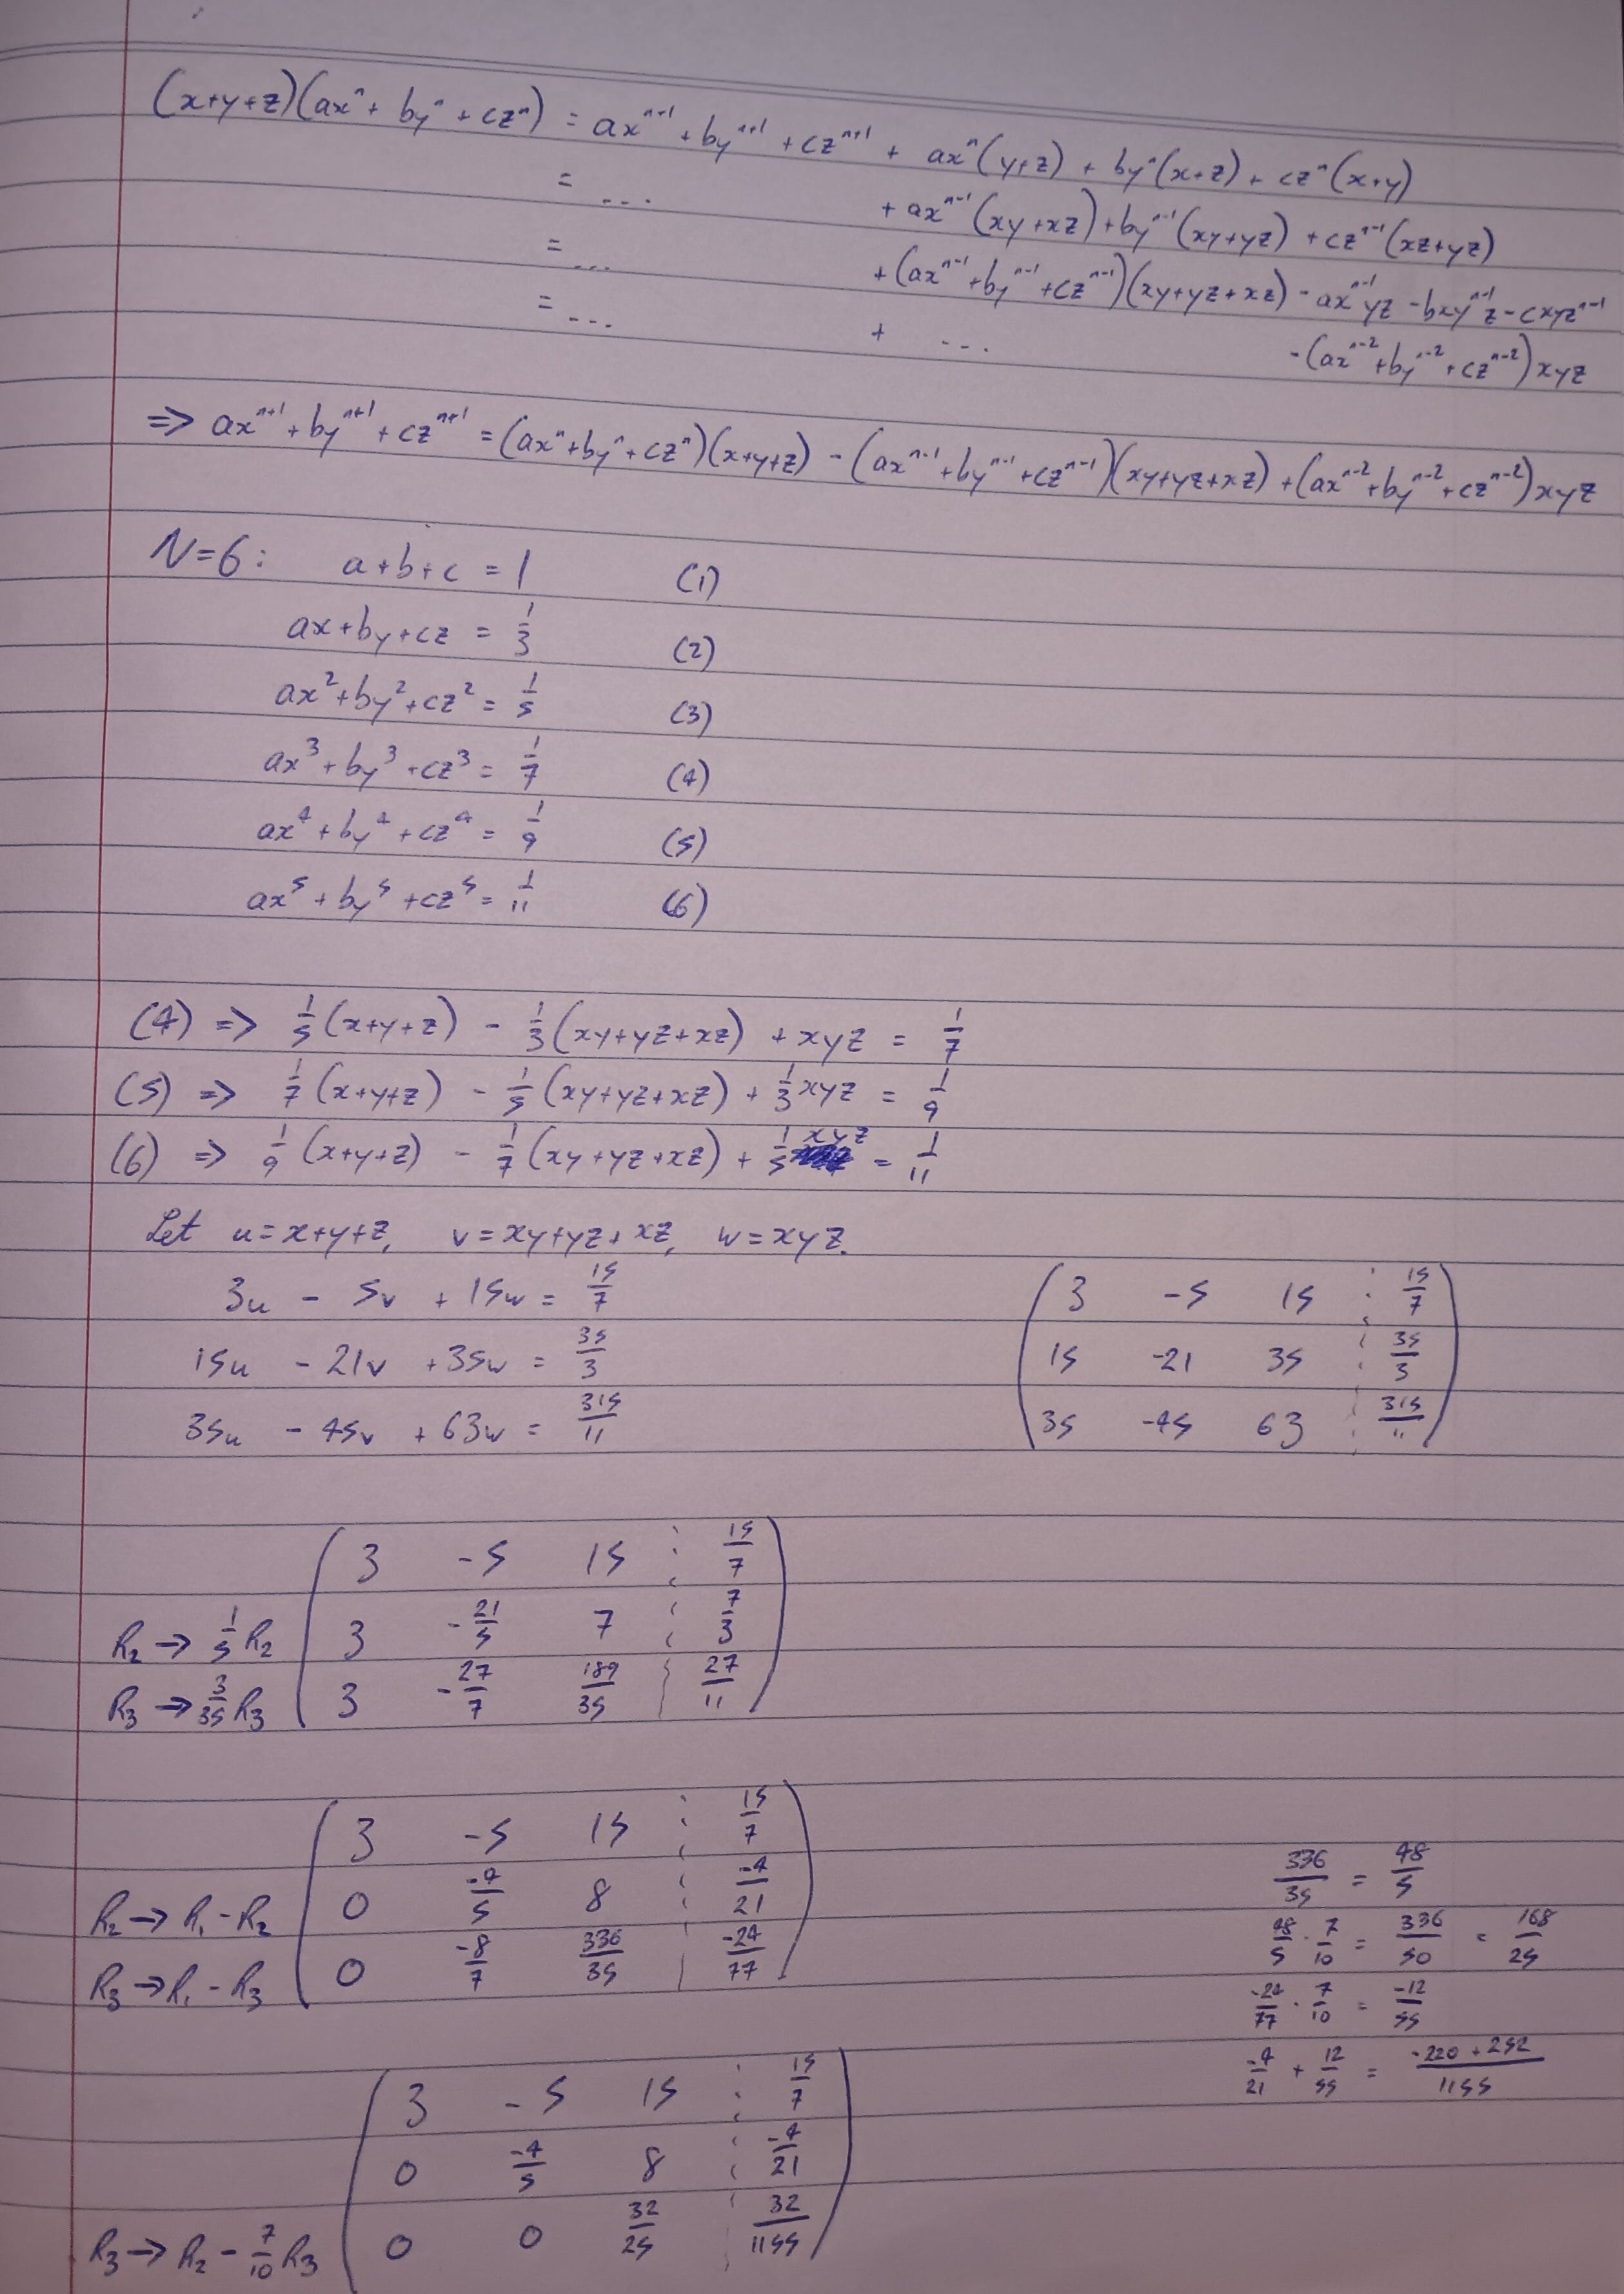 (x+y+z)(axⁿ + byⁿ + czⁿ) = axⁿ⁺¹ + byⁿ⁺¹ + czⁿ⁺¹ + axⁿ(y+z) + byⁿ(x+z) + czⁿ(x+y)
= ... + axⁿ⁻¹(xy+xz) + byⁿ⁻¹(xy+yz) + czⁿ⁻¹(xz+yz)
= ... + (axⁿ⁻¹ + byⁿ⁻¹ + czⁿ⁻¹)(xy+yz+xz) - axⁿ⁻¹yz - bxyⁿ⁻¹z - cxyzⁿ⁻¹
= ... + ... - (axⁿ⁻² + byⁿ⁻² + czⁿ⁻²)xyz
=> axⁿ⁺¹ + byⁿ⁺¹ + czⁿ⁺¹ = (axⁿ + byⁿ + czⁿ)(x+y+z) - (axⁿ⁻¹ + byⁿ⁻¹ + czⁿ⁻¹)(xy+yz+xz) + (axⁿ⁻² + byⁿ⁻² + czⁿ⁻²)xyz
N=6: a+b+c = 1 (1)
ax+by+cz = 1/3 (2)
ax²+by²+cz² = 1/5 (3)
ax³+by³+cz³ = 1/7 (4)
ax⁴+by⁴+cz⁴ = 1/9 (5)
ax⁵+by⁵+cz⁵ = 1/11 (6)
(4) => 1/5 (x+y+z) - 1/3 (xy+yz+xz) + xyz = 1/7
(5) => 1/7 (x+y+z) - 1/5 (xy+yz+xz) + 1/3 xyz = 1/9
(6) => 1/9 (x+y+z) - 1/7 (xy+yz+xz) + 1/5 xyz = 1/11
Let u=x+y+z, v=xy+yz+xz, w=xyz.
3u - 5v + 15w = 15/7
15u - 21v + 35w = 35/3
35u - 45v + 63w = 315/11
3 -5 15 15/7
15 -21 35 35/3
35 -45 63 315/11
3 -5 15 15/7
R₂ → 1/5 R₂ 3 -21/5 7 7/3
R₃ → 3/35 R₃ 3 -27/7 189/35 27/11
3 -5 15 15/7
R₂ → R₁ - R₂ 0 -4/5 8 -4/21
R₃ → R₁ - R₃ 0 -8/7 336/35 -24/77
336/35 = 48/5
48/5 · 7/10 = 336/50 = 168/25
-24/77 · 7/10 = -12/55
-4/21 + 12/55 = -220+252/1155
3 -5 15 15/7
0 -4/5 8 -4/21
R₃ → R₂ - 7/10 R₃ 0 0 32/25 32/1155